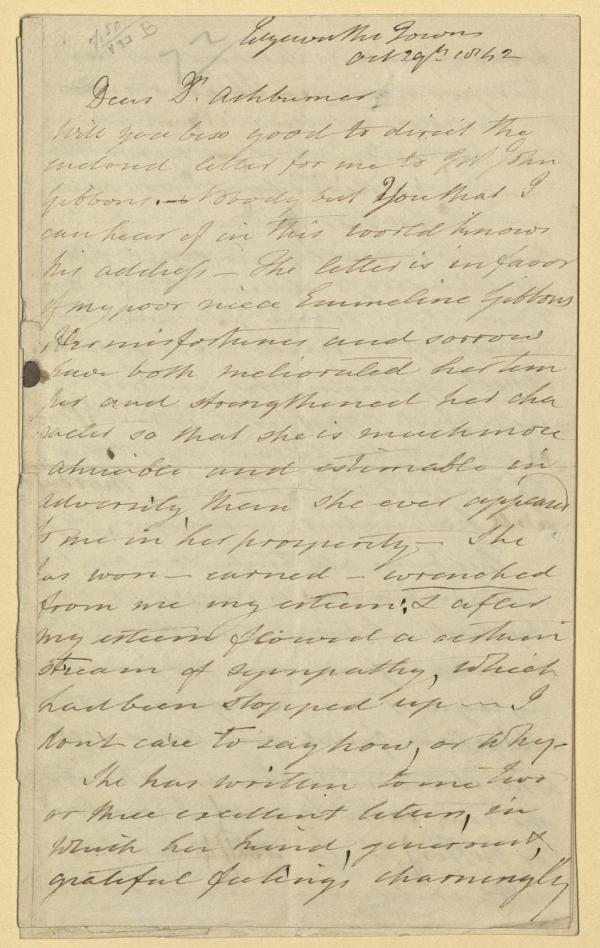 Edgeworths Town
Oct 29th 1842
Dear Dr. Ashburner
Will you be so good to direct the
enclosed letter for me to Mr John
Gibbons. — Nobody but You that I
can hear of in this world knows
his address — The letter is in favor
of my poor niece Emmeline Gibbons
Her misfortunes and sorrow
have both meliorated her tem
per and strengthened her cha
racter so that she is much more
amiable and estimable in
adversity than she ever appeared
to me in her prosperity — She
has won — earned — wrenched
from me my esteem; & after
my esteem flowed a certain
stream of sympathy, which
had been stopped up — I
don't care to say how, or why —
She has written to me two
or three excellent letters, in
which her kind, generous &,
grateful feelings charmingly